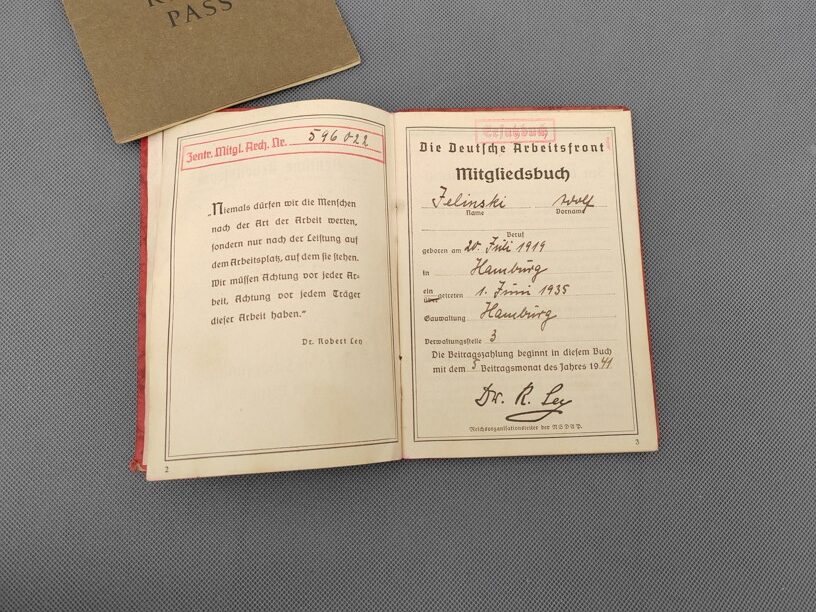 PASS
Zentr. Mitgl. Arch. Nr. 596022
„Niemals dürfen wir die Menschen
nach der Art der Arbeit werten,
sondern nur nach der Leistung auf
dem Arbeitsplatz, auf dem sie stehen.
Wir müssen Achtung vor jeder Ar-
beit, Achtung vor jedem Träger
dieser Arbeit haben.“
Dr. Robert Ley
2
Ersatzbuch
Die Deutsche Arbeitsfront
Mitgliedsbuch
Jelinski Wolf
Name Vorname
Beruf
geboren am 20. Juli 1919
in Hamburg
ein
über getreten 1. Juni 1935
Gauwaltung Hamburg
Verwaltungsstelle 3
Die Beitragszahlung beginnt in diesem Buch
mit dem 5 Beitragsmonat des Jahres 1941
Dr. R. Ley
Reichsorganisationsleiter der NSDAP.
3